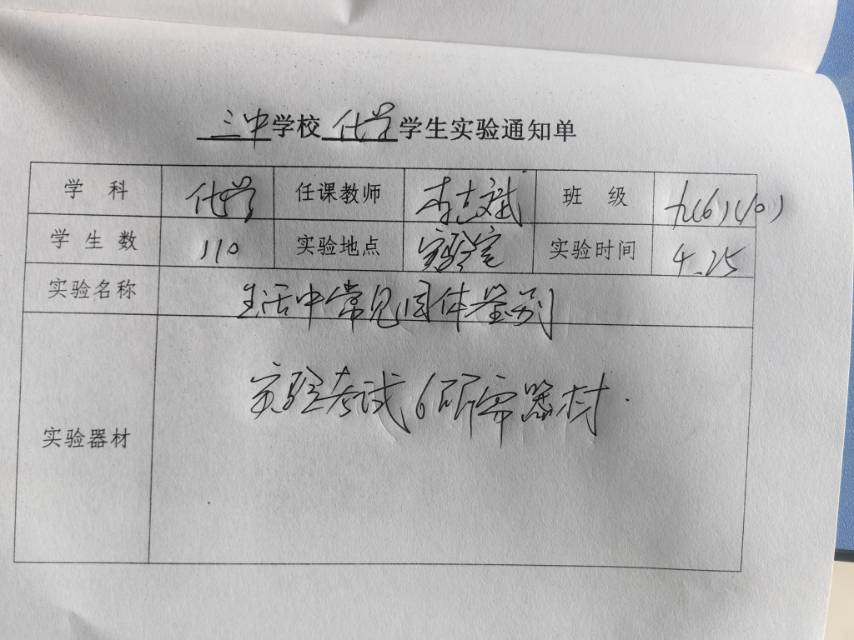 三中学校 化学 学生实验通知单
学科 化学 任课教师 李志斌 班级 九(6)、(10)
学生数 110 实验地点 实验室 实验时间 4.25
实验名称 生活中常见固体鉴别
实验器材 实验考试6所需器材.